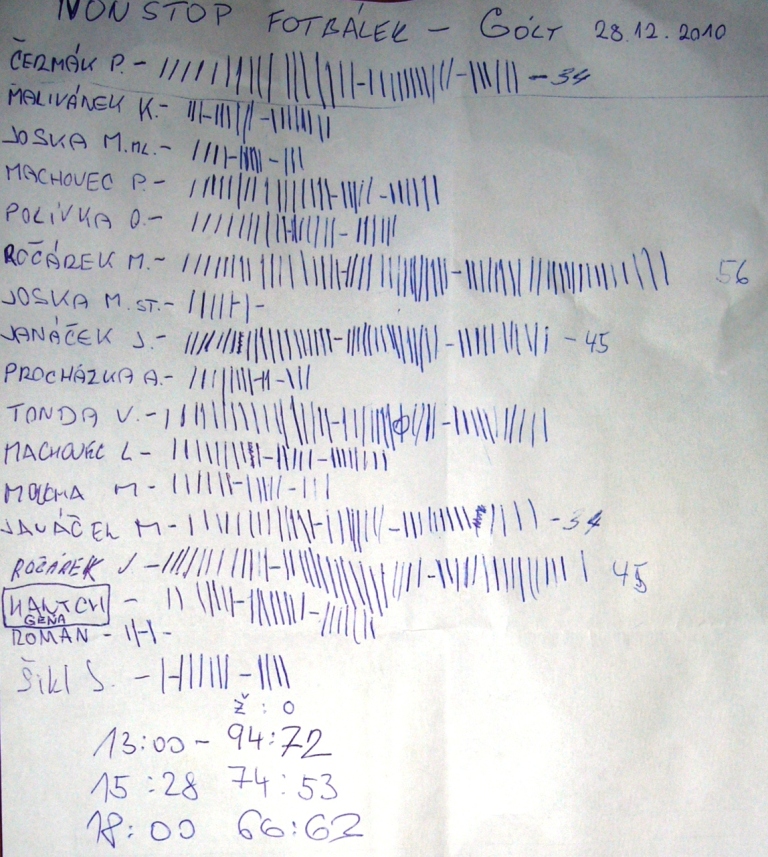 NON STOP FOTBÁLEK - GÓLY 28.12.2010
ČERMÁK P. - - 34
MALIVÁNEK K. -
JOSKA M.ML. -
MACHOVEC P. -
POLÍVKA O. -
ROČÁREK M. - 56
JOSKA M. ST. -
JANÁČEK J. - - 45
PROCHÁZKA A. -
TONDA V. -
MACHOVEC L -
M -
JANÁČEK M - - 34
ROČÁREK J - 45
GEŇA
ROMAN -
ŠIKL S. -
Ž : O
13:00 - 94:72
15:28 74:53
18:00 66:62